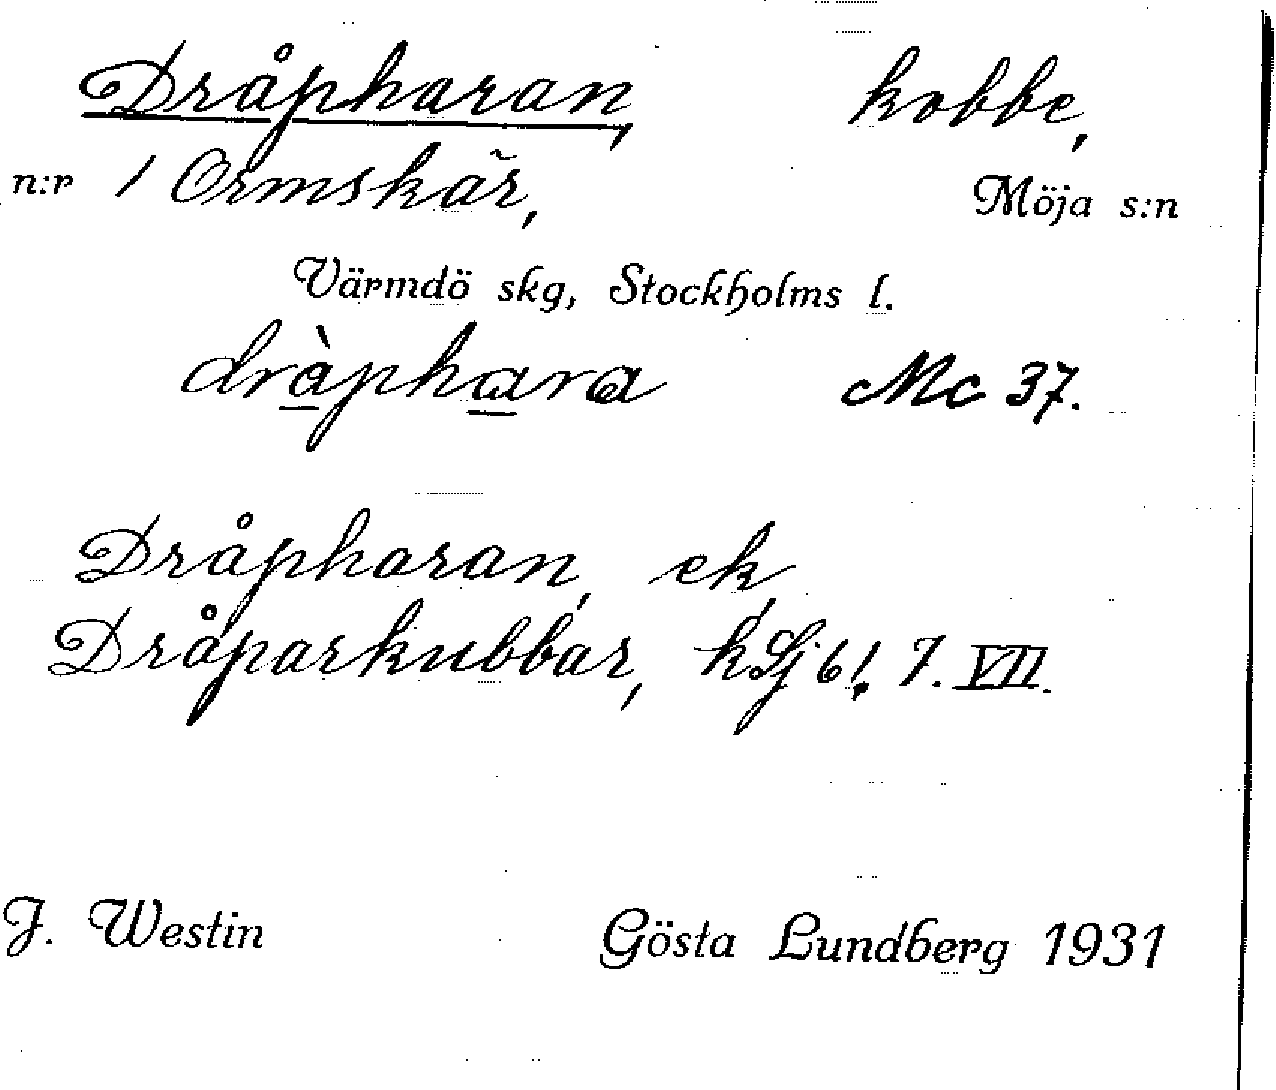 Dråpharan, kobbe,
n:r 1 Ormskär, Möja s:n
Värmdö skg, Stockholms l.
dràphara Mc 37.
Dråpharan, ek,
Dråparkubbar, k Sj 61. 7. VII.
J. Westin Gösta Lundberg 1931